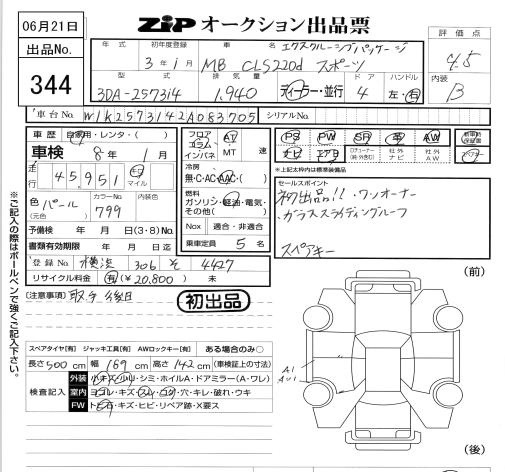 06月21日
ZIP オークション出品票
出品No.
344
年式 初年度登録 車名 エクスクルーシブパッケージ 評価点
3年1月 MB CLS220d スポーツ 4.5
型式 排気量 ドア ハンドル 内装
3DA-257314 1,940 ディーラー・並行 4 左・右 B
車台No. W1K2573142A083705 シリアルNo.
車歴 自家用・レンタ・( )
車検 8年1月
走行 45,951 km マイル
色 パール カラーNo. 799
(元色)
予備検 年 月 日(3・8)No.
書類有効期限 年 月 日迄
登録No. 横浜 306 そ 4427
リサイクル料金 有(¥20,800) 未
フロア コラム インパネ AT MT 速
冷房
無・C・AC・AAC・( )
燃料
ガソリン・軽油・電気・
その他( )
Nox 適合・非適合
乗車定員 5 名
PS PW SR 革 AW
ナビ エアB 社外ナビ 社外AW
※上記太枠内は標準装備品
セールスポイント
初出品!! ・ワンオーナー
・ガラススライディングルーフ
スペアキー
(注意事項) 取手 後日
初出品
スペアタイヤ[有] ジャッキ工具[有] AWロックキー[有] ある場合のみ○
長さ 500 cm 幅 189 cm 高さ 142 cm (車検証上の寸法)
検査記入
外装 小キズ・小U・シミ・ホイルA・ドアミラー(A・ワレ)
室内 ヨゴレ・キズ・スレ・コゲ・穴・キレ・破れ・ウキ
FW トビ石・キズ・ヒビ・リペア跡・X要ス
(前)
A1
(後)
※ご記入の際はボールペンで強くご記入下さい。